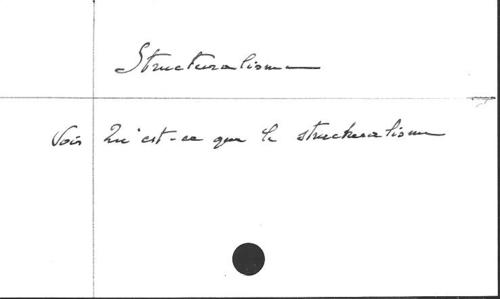 Structuralisme
Voir Qu'est-ce que le structuralisme